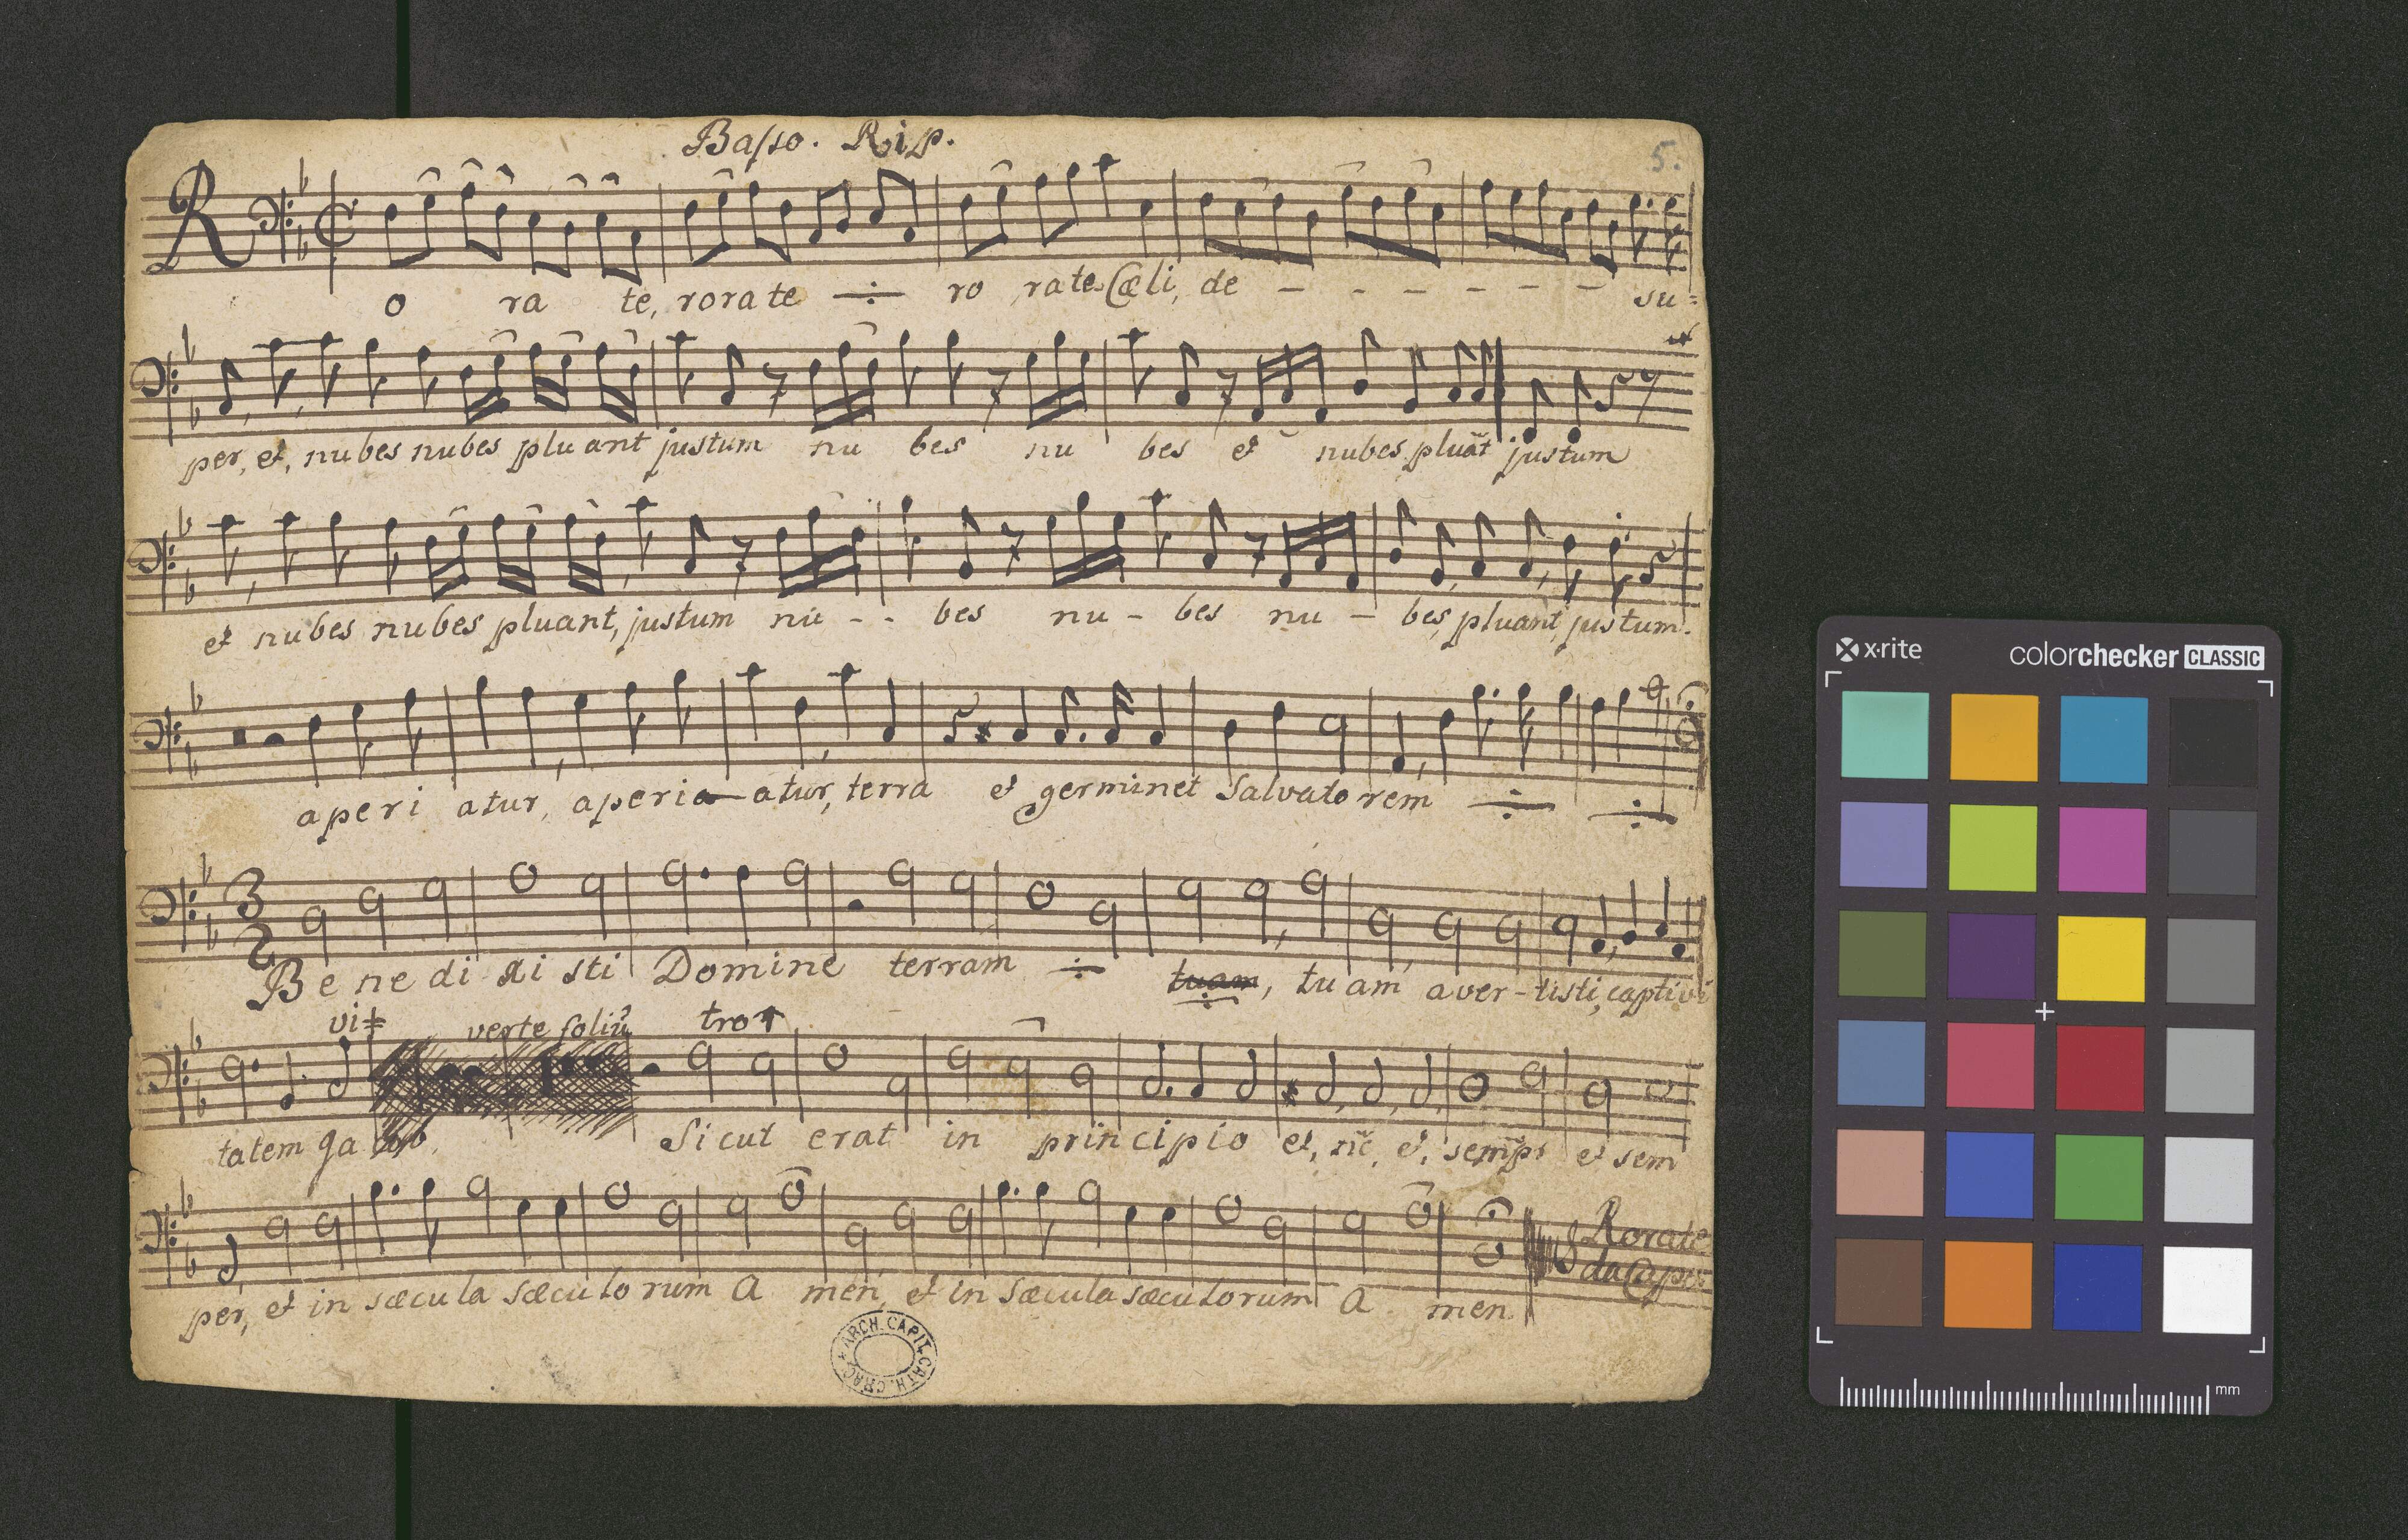 Basso. Rip.
5.
R
o ra te, rorate ÷ ro rate Cæli, de - - - - - - su=
per, et, nubes nubes pluant justum nu bes nu bes et nubes pluãt justum
et nubes nubes pluant, justum nu - - bes nu - bes nu - bes, pluant, justum.
aperi atur, aperia atur, terra et germinet Salvatorem ÷ ÷
3
2
Benedixisti Domine terram ÷ tuam, tuam aver-tisti, captivi
vi verte foliũ tro
tatem Ja cob. Sicut erat in principio et, nc̃, et, semp̃r et sem
per, et in sæcula sæculorum A men, et in sæcula sæculorum A men.
Rorate
da Capo
ARCH. CAPIT. CATH. CRAC.
x·rite
colorchecker CLASSIC
mm